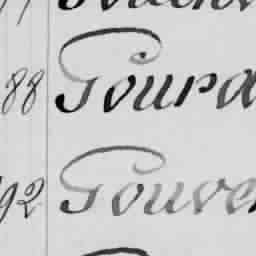 88 Goura
92 Gouve